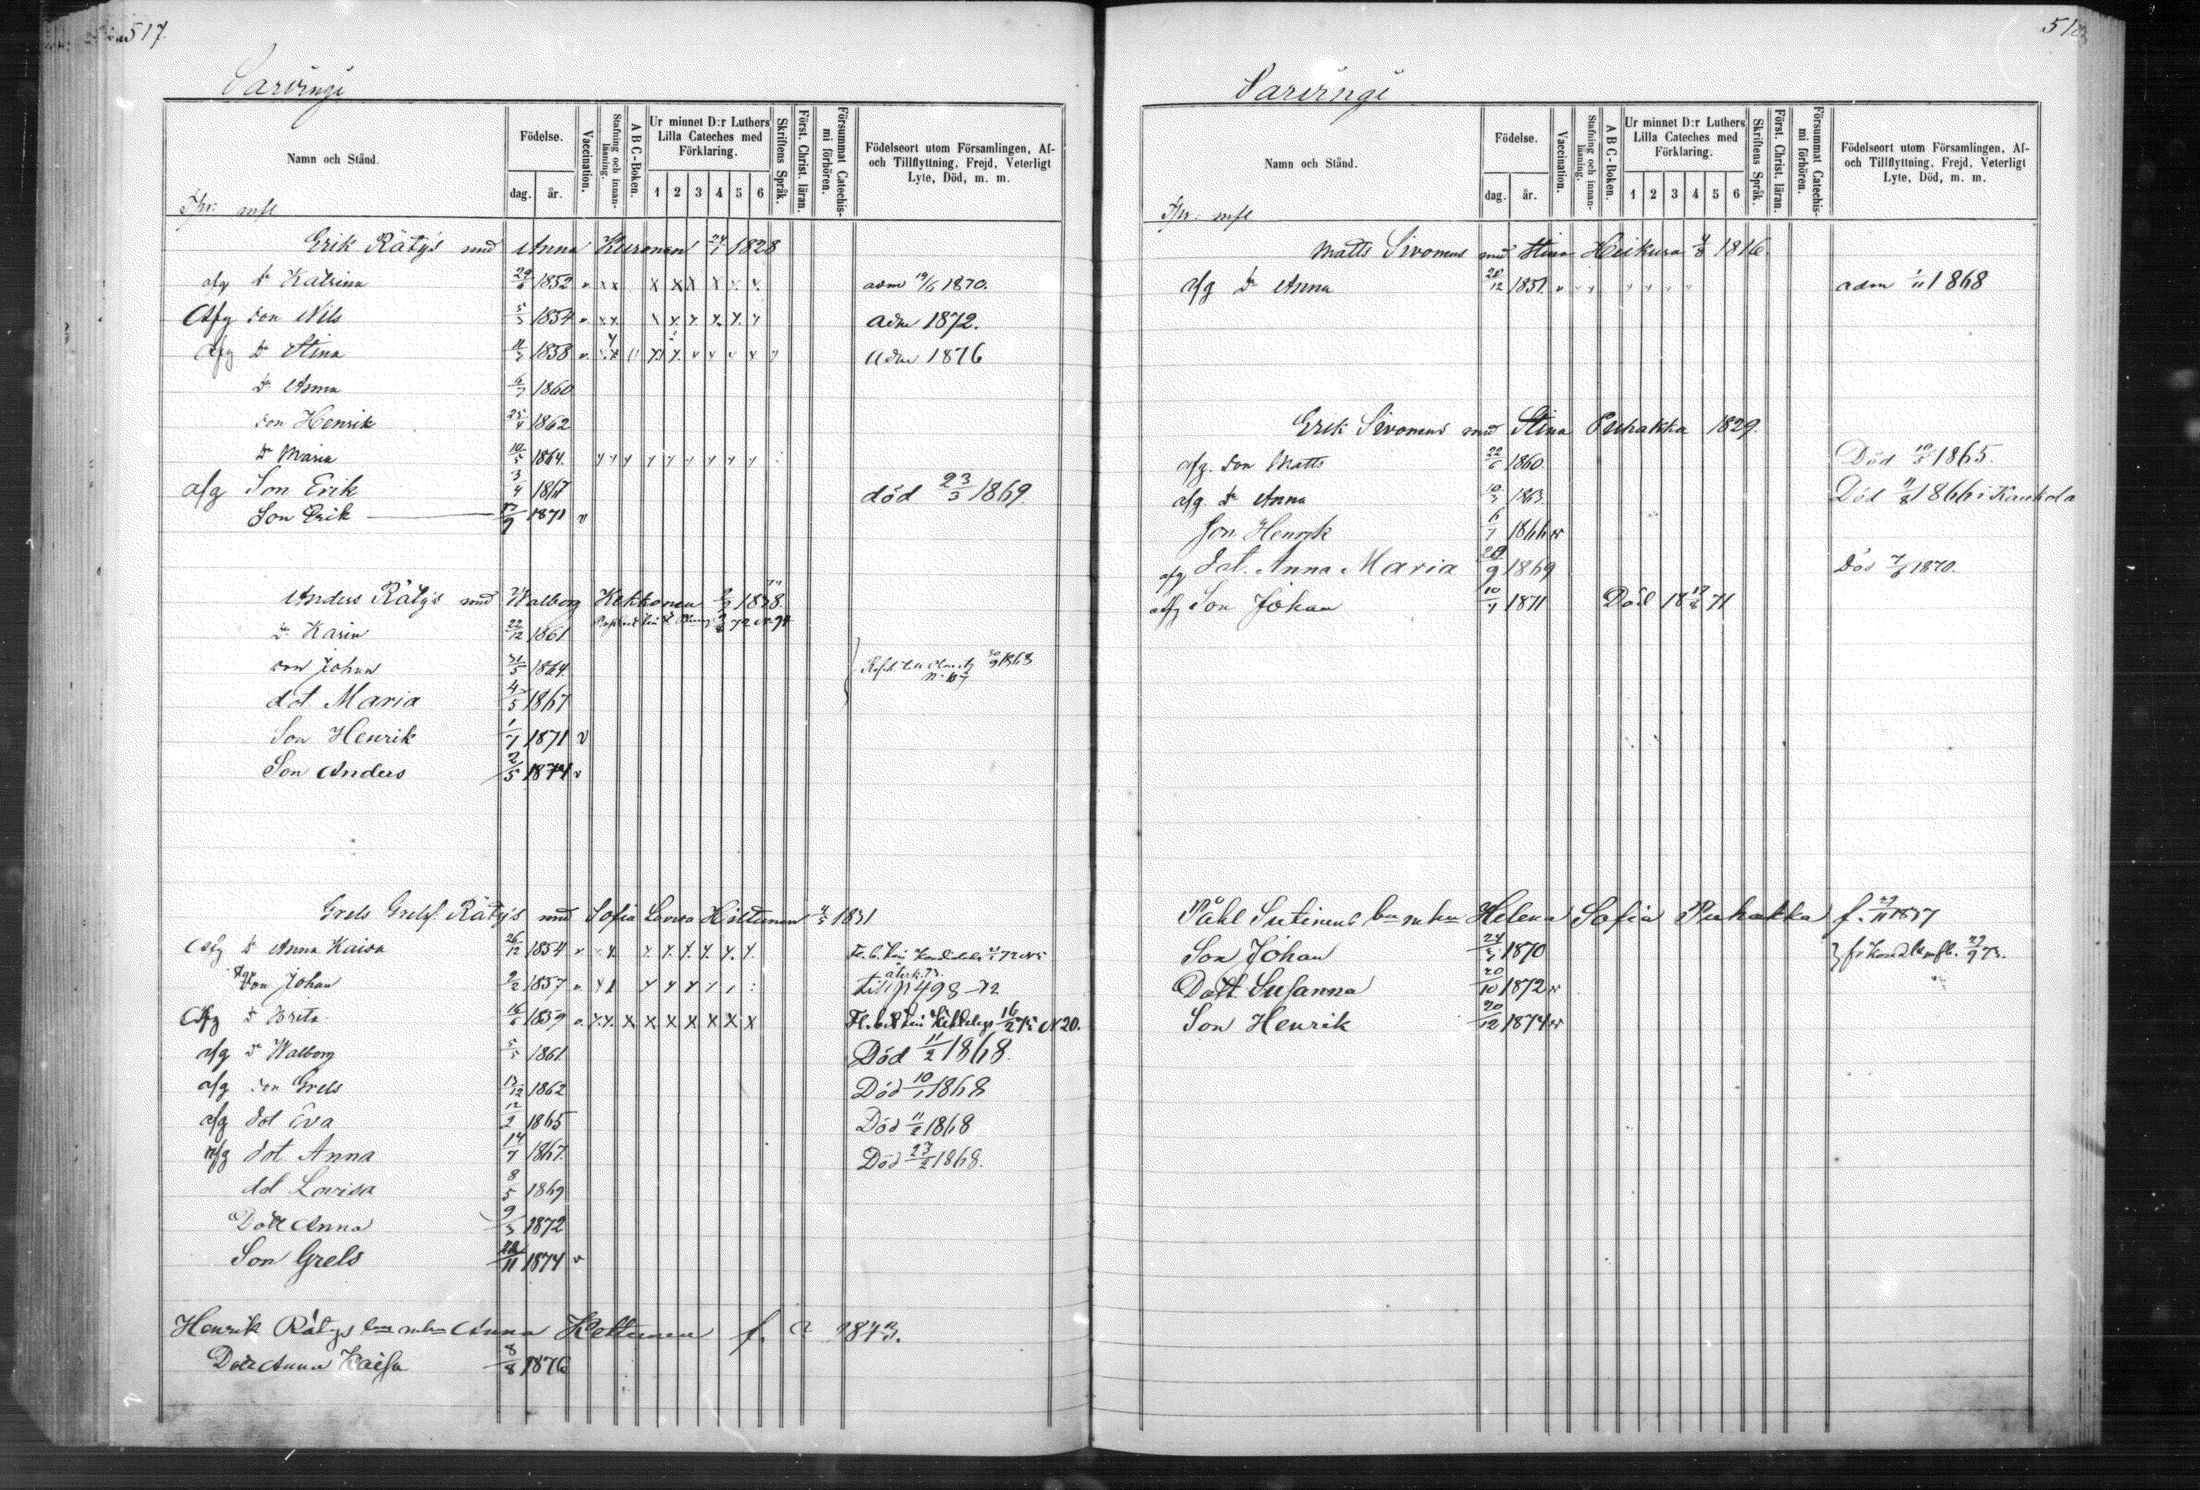 517.
Sarvingi
Namn och Stånd.
Födelse.
dag. år.
Vaccination.
Stafning och innanläsning.
ABC-Boken.
Ur minnet D:r Luthers Lilla Cateches med Förklaring.
1 2 3 4 5 6
Skriftens Språk.
Först. Christ. läran.
Försummat Catechismi förhören.
Födelseort utom Församlingen, Af- och Tillflyttning, Frejd, Veterligt Lyte, Död, m. m.
Erik Rätys med Anna Kuronen 24/1 1828
afg dr Katrina 29/6 1852 adm 19/6 1870.
afg son Nils 5/3 1854 adm 1872.
afg Dr Stina 11/3 1858 adm 1876
Dr Anna 6/7 1860
son Henrik 25/4 1862
Dr Maria 10/5 1864.
afg Son Erik 3/4 1867 död 23/3 1869
Son Erik 17/9 1871
Anders Rätys med Walborg Kekkonen
Dr Karin 22/12 1861
son Johan 31/5 1864.
dot Maria 4/5 1867
Son Henrik 1/7 1871
Son Anders 2/5 1874
Grels Grelsf. Rätys med Sofia Lovisa Hiltunen 4/5 1831
afg dr Anna Kaisa 26/12 1854
Son Johan 9/2 1857 till p 498
afg dr Brita 16/6 1859 16/2 75 N 20.
afg dr Walborg 5/5 1861. Död 11/2 1868.
afg son Grels 13/12 1862 Död 10/1 1868
afg dot Eva 12/2 1865 Död 11/2 1868
afg dot Anna 14/7 1867. Död 23/2 1868.
dot Lovisa 8/5 1869
Dott Anna 9/3 1872
Son Grels 22/11 1874
Henrik Rätys Anna Kettunen f. 1843.
Dott Anna Kaisa 8/8 1876
518
Sarvingi
Namn och Stånd.
Födelse.
dag. år.
Vaccination.
Stafning och innanläsning.
ABC-Boken.
Ur minnet D:r Luthers Lilla Cateches med Förklaring.
1 2 3 4 5 6
Skriftens Språk.
Först. Christ. läran.
Försummat Catechismi förhören.
Födelseort utom Församlingen, Af- och Tillflyttning, Frejd, Veterligt Lyte, Död, m. m.
Matts Sivonens med Stina Heikura 4/8 1816.
afg dr Anna 20/12 1851. adm 1/11 1868
Erik Sivonens med Stina Puhakka 1829.
afg. son Matts 22/6 1860. Död 1865.
afg. dr Anna 10/3 1863. Död 1866 i
Son Henrik 6/7 1866
afg dot. Anna Maria 9 1869 Död 1870.
afg Son Johan 10/4 1871 Död 71
Påhl Sutinens Helena Sofia Puhakka f. 1857
Son Johan 24/3 1870
Dott Susanna 20/10 1872
Son Henrik 20/12 1874